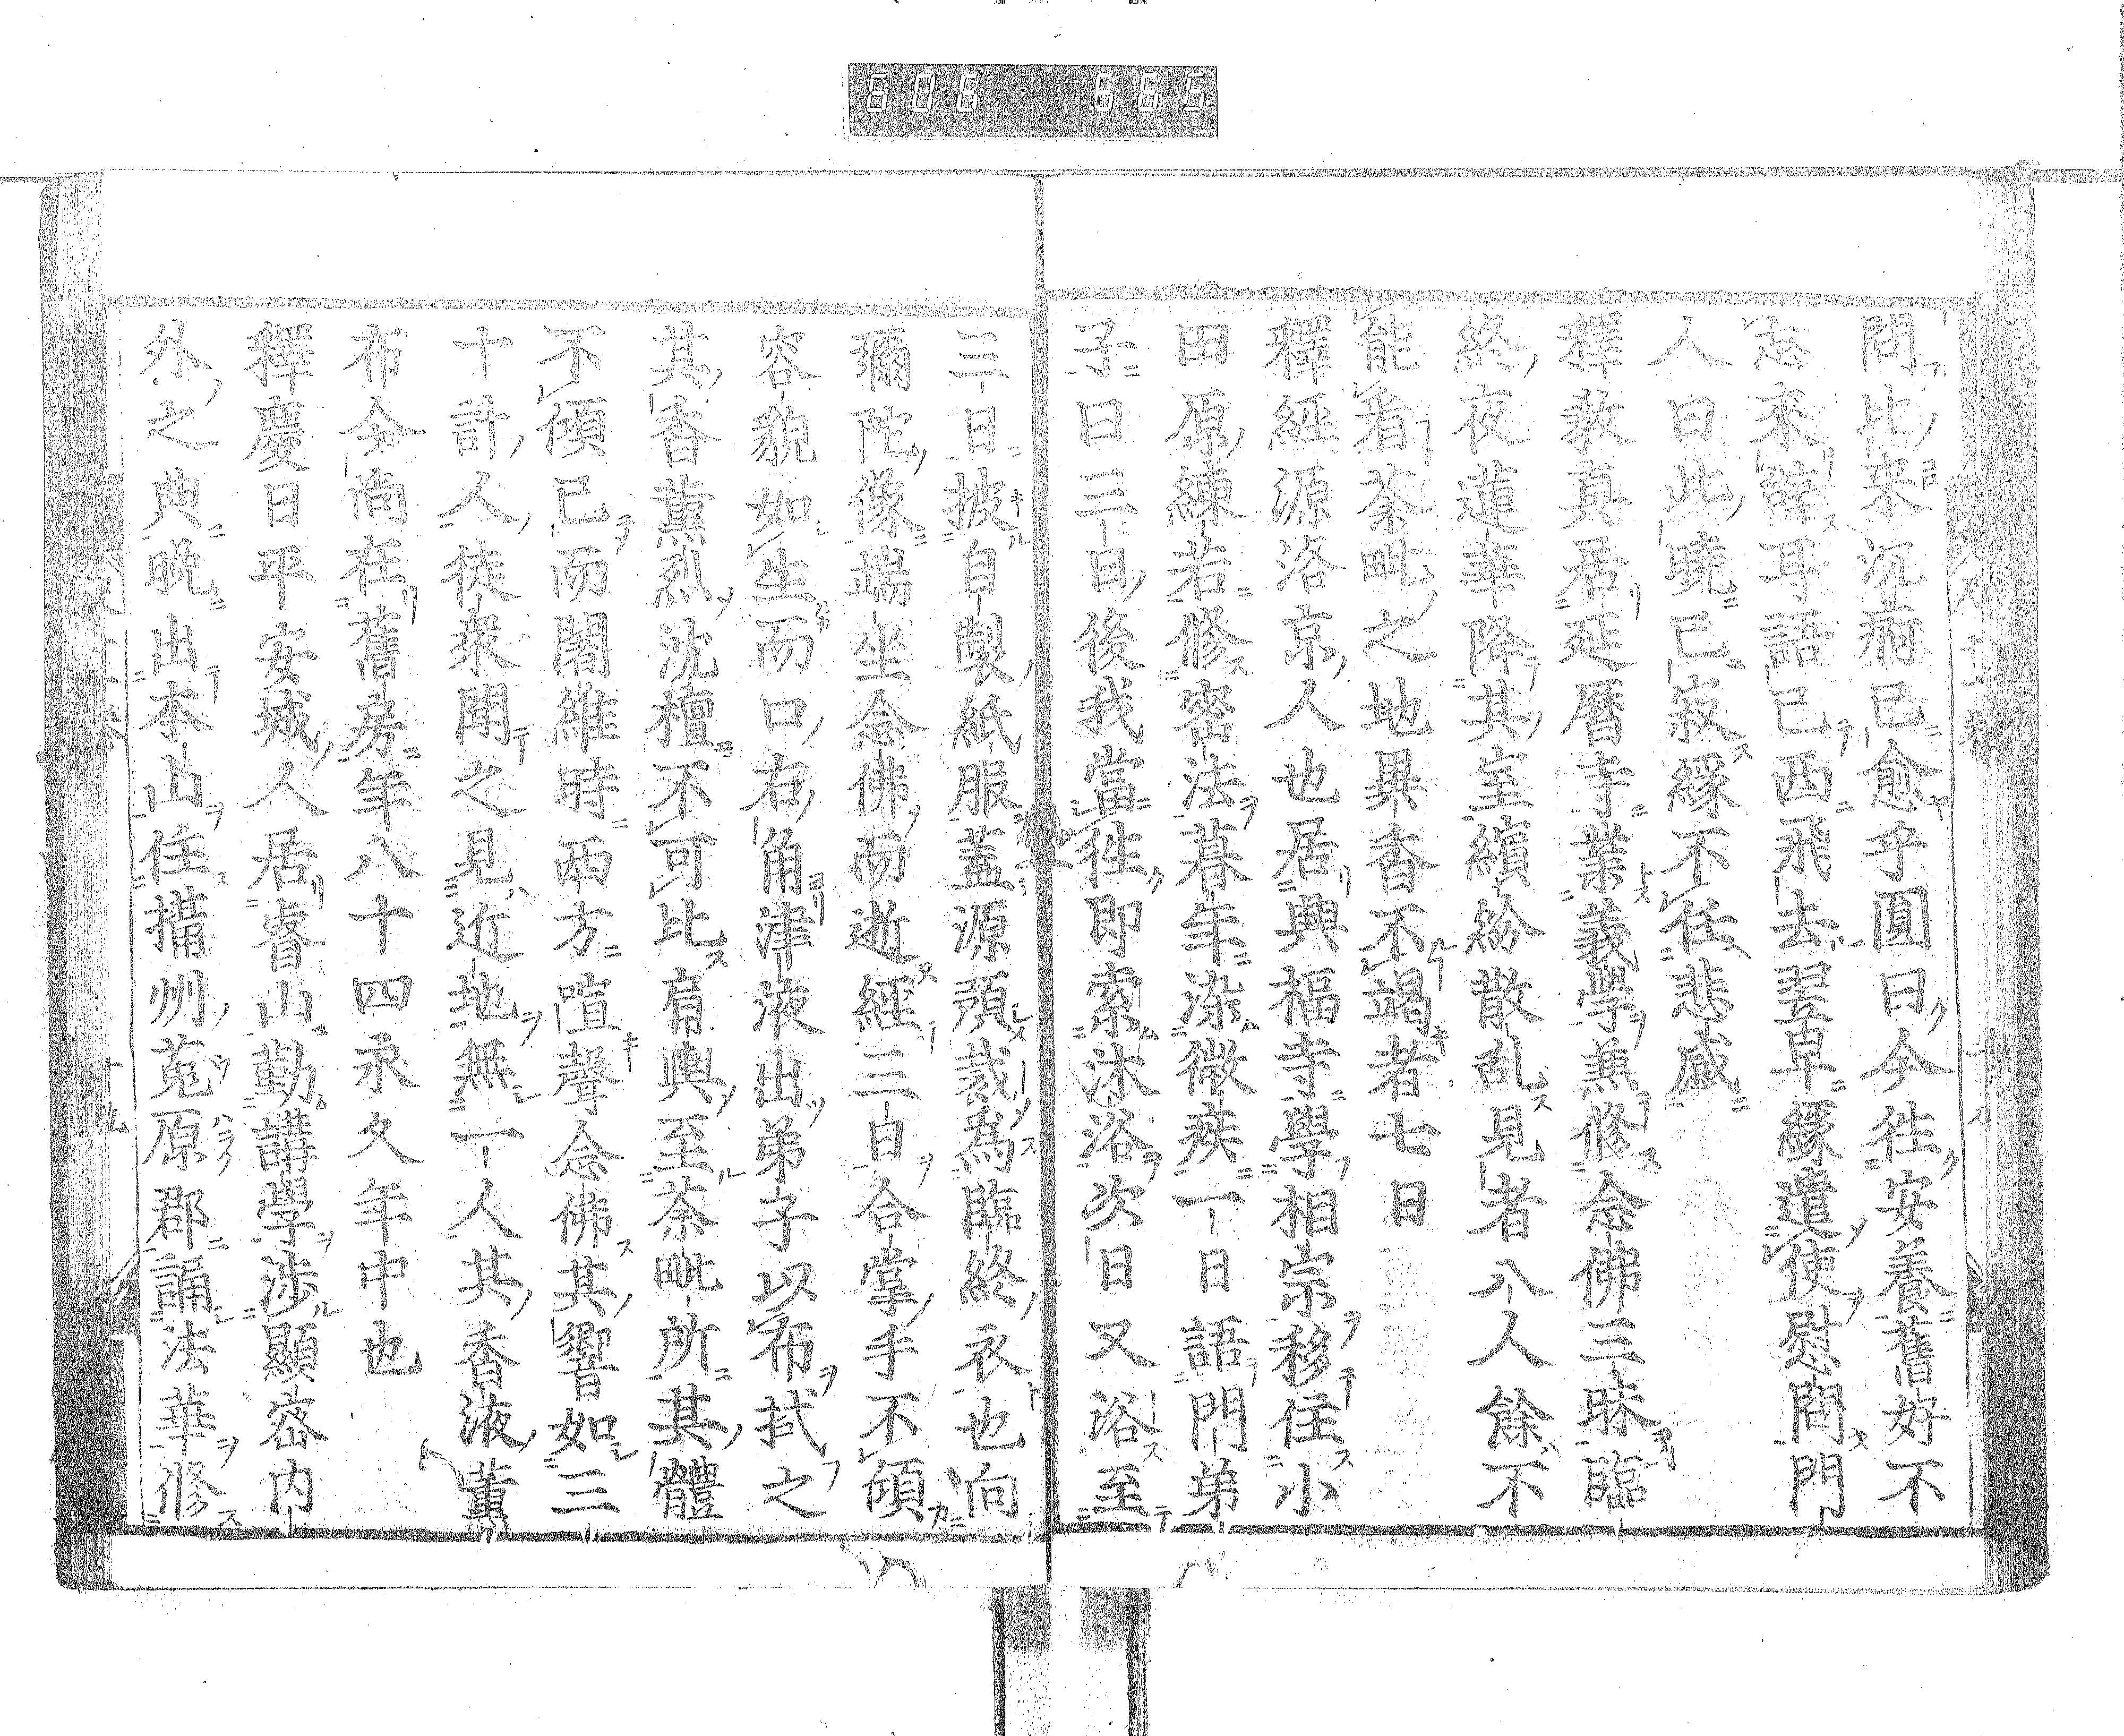 606 665
問比来沉痾已愈乎圓曰今徃安養舊好不
忘來辞耳語已西飛去翌早緣遣使慰問門
人曰此曉已寂緣不任悲感
釋教真居延曆寺業義學兼修念佛三昧臨
終夜蓮華降其室繽紛散乱見者八人餘不
能看荼毗之地異香不竭者七日
釋經源洛京人也居興福寺學相宗移住小
田原練若修密法暮年染微疾一日語門弟
子曰三日後我當徃即索沐浴次日又浴至
三日披自製紙服蓋源預裁為臨終衣也向
彌陀像端坐念佛而逝經三日合掌手不傾
容貌如生而口右角津液出弟子以布拭之
其香薰烈沈檀不可比肩輿至荼毗所其體
不傾已而闍維時西方喧聲念佛其響如三
十計人徒衆聞之見近地無一人其香液薰
布今尚在舊房年八十四永久年中也
釋慶日平安城人居睿山勤講學涉顯密内
外之典晚出本山住攝州菟原郡誦法華修